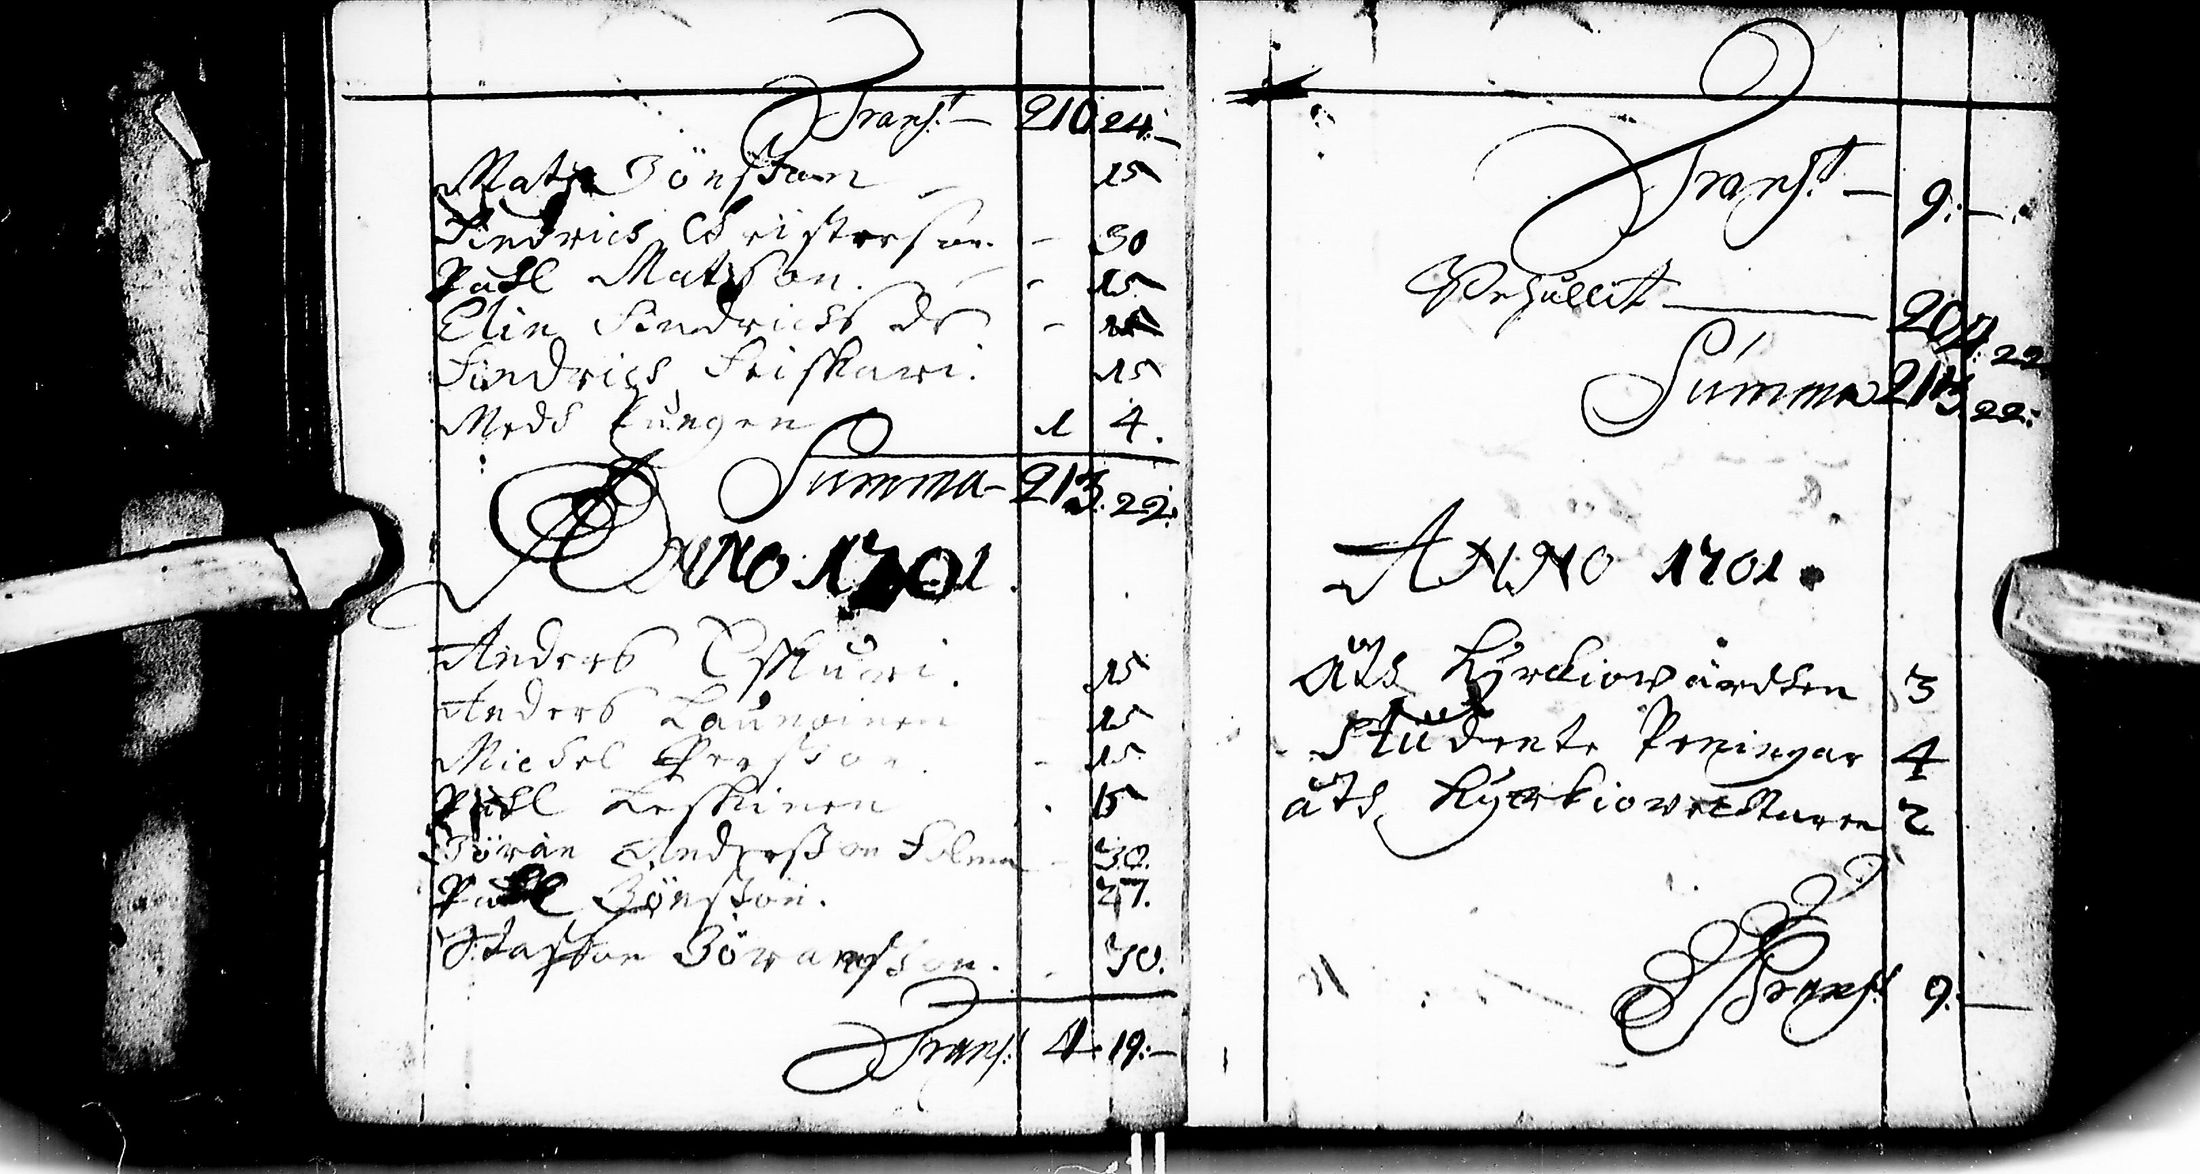 Transp:t — 210 24:—
Mats Jönsson — 15
Hindrich Christersson — 30
Påhl Matsson — 15
Elin Hindrichs dr — 15
Hindrich Friskari. 15
Medh Pungen 1 4.
Summa — 213. 22.
ANNO 1701.
Anders Eskuri. 15
Anders Laur 15
Michel Persson. — 15
Påhl Leskinen . 15
Jöran Andersson 30.
Påhl Jönsson. 27.
Staffan Göransson. 30.
Transp: 4. 19:—
Transp:t — 9:—
Resulterat — 204. 22
Summa 213 22:
ANNO 1701.
åth Kyrckiowärdhen 3
Studente Peningar 4
åth Kyrkiowechtaren 2
Transp:t 9:—